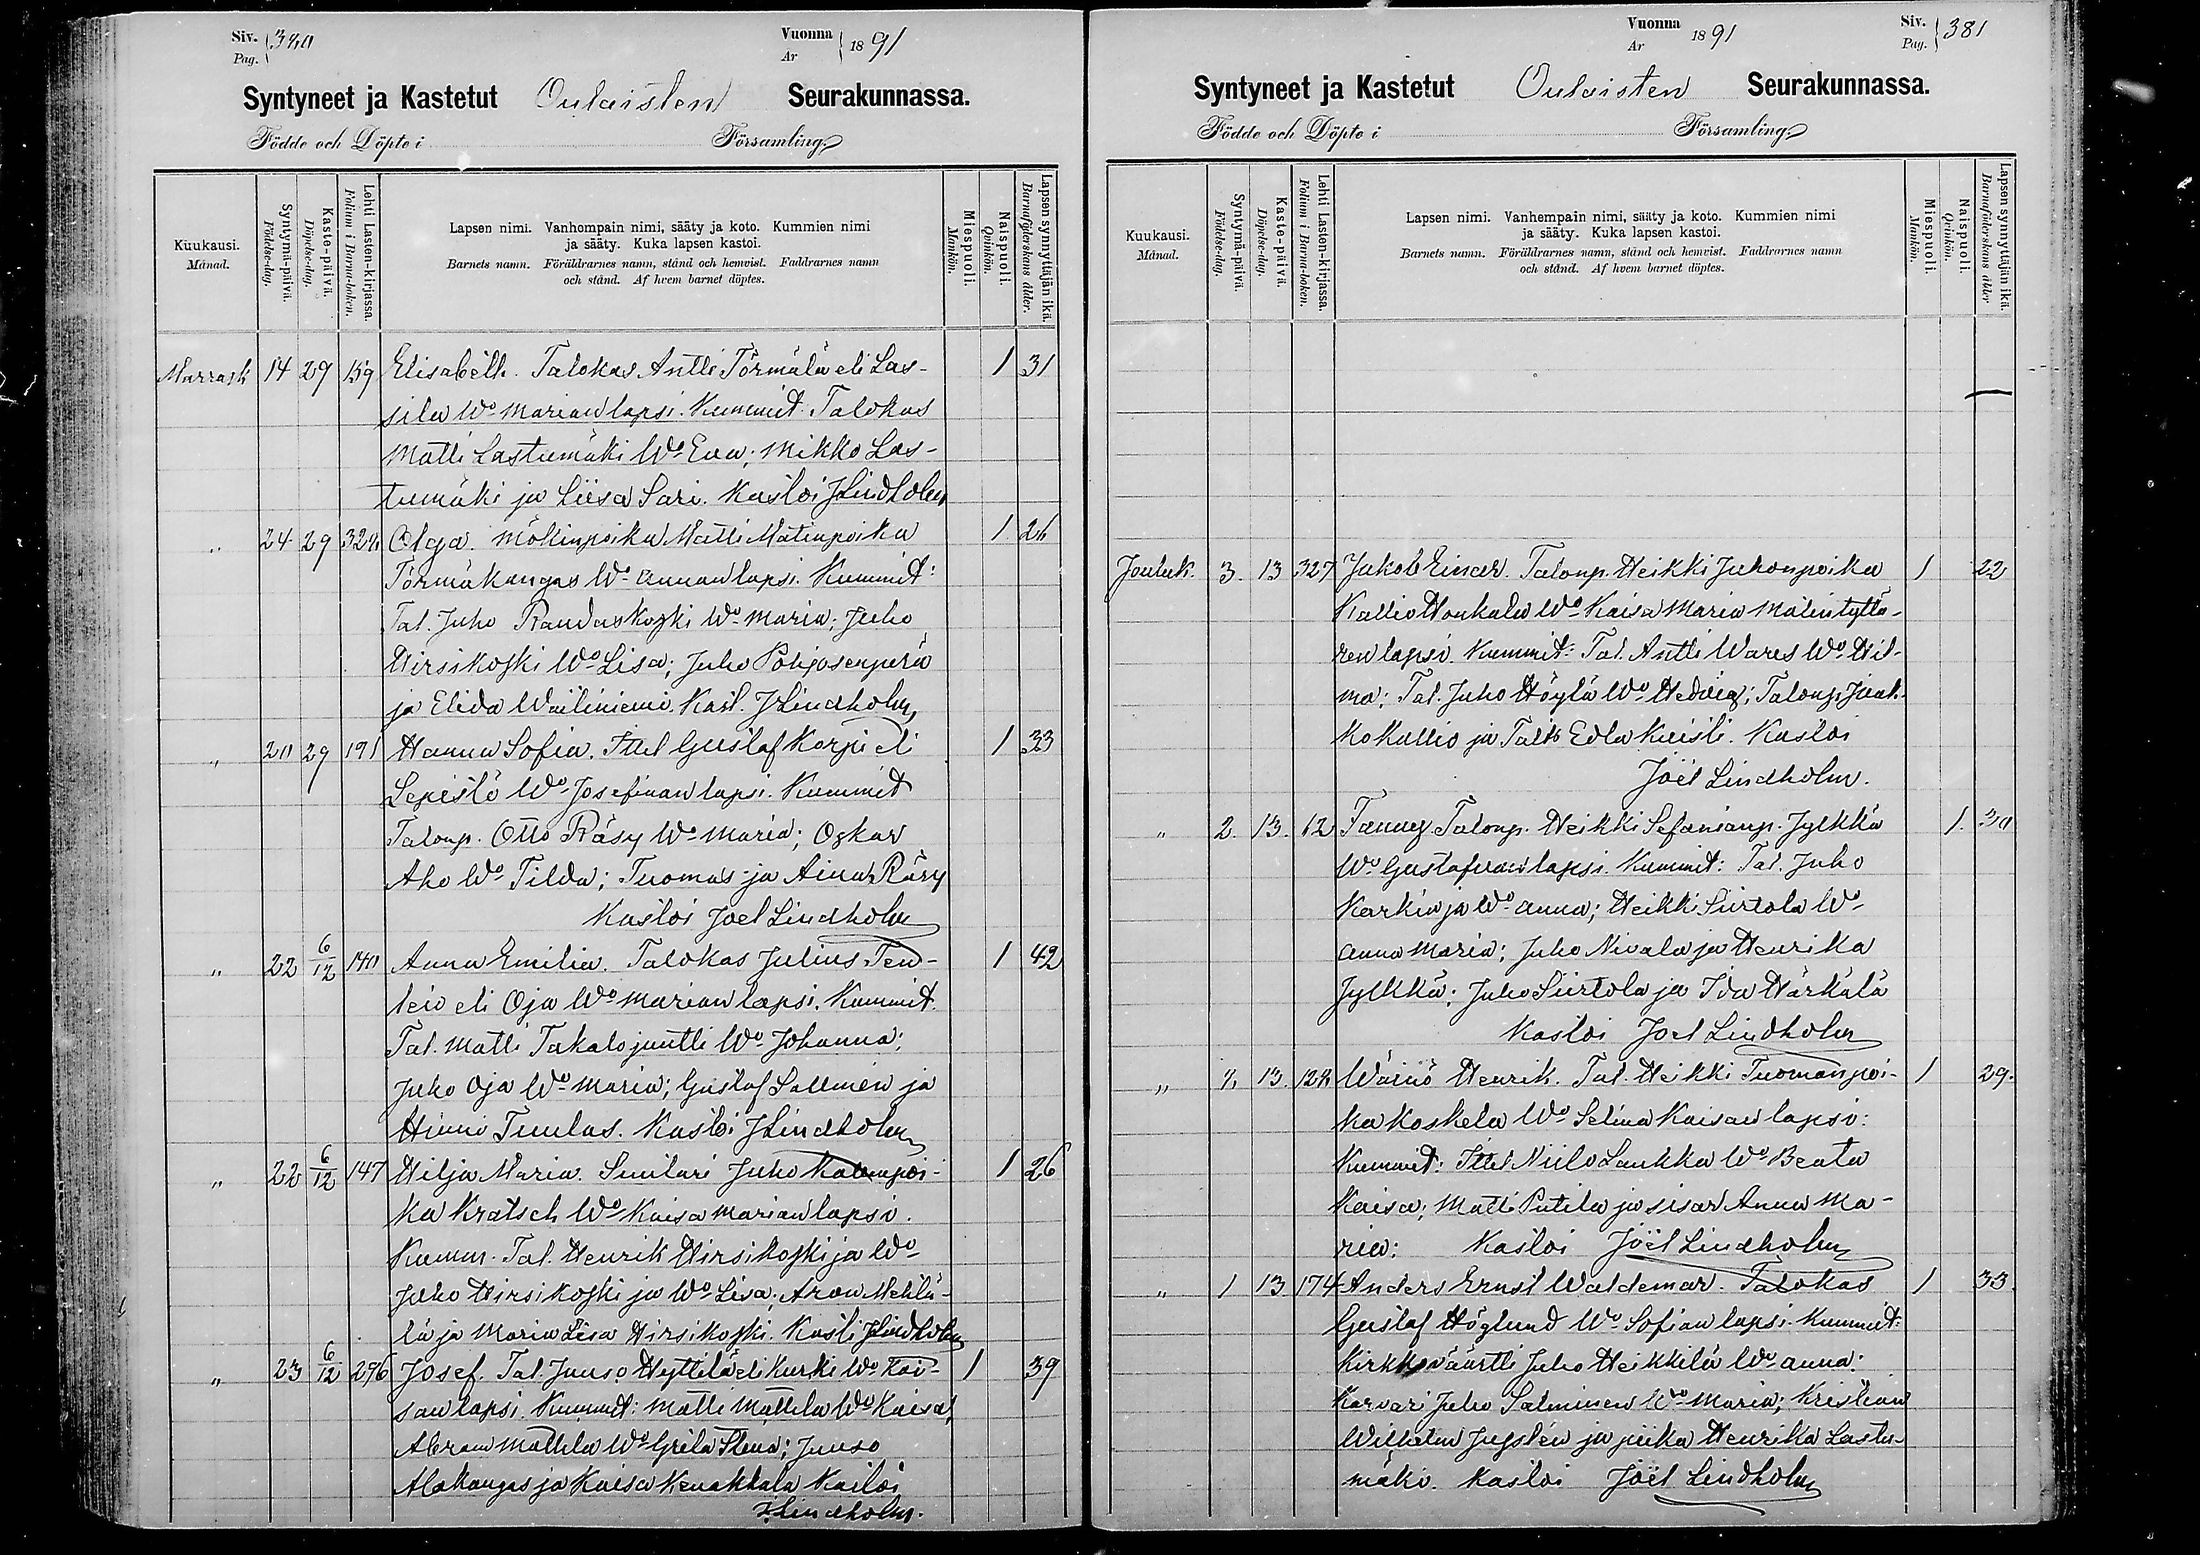 Siv. Pag. 380
Vuonna Ar 1891
Syntyneet ja Kastetut Oulaisten Seurakunnassa.
Födde och Döpte i Församling.
Kuukausi. Månad.
Syntymä-päivä. Födelse-dag.
Kaste-päivä. Döpelse-dag.
Lehti Lasten-kirjassa. Folium i Barna-boken.
Lapsen nimi. Vanhempain nimi, sääty ja koto. Kummien nimi
ja sääty. Kuka lapsen kastoi.
Barnets namn. Föräldrarnes namn, stånd och hemvist. Faddrarnes namn
och stånd. Af hvem barnet döptes.
Miespuoli. Mankön.
Naispuoli. Qvinkön.
Lapsen synnyttäjän ikä. Barnaföderskans ålder.
Marrask 14 29 159 Elisabeth. Talokas Antti Törmälä eli Las- 1 31
sila Wo Marian lapsi. Kummit: Talokas
Matti Lastumäki Wo Eva; Mikko Las-
tumäki ja Liisa Sari. Kastoi JLindholm
" 24 29 Olga. Matti Matinpoika 1 26
Törmäkangas Wo Annan lapsi. Kummit:
Tal. Juho Raudaskoski Wo Maria; Juho
Hirsikoski Wo Lisa; Juho Pohjosenperä
ja Elida Kast. JLindholm
" 20 29 191 Hanna Sofia. Ittel Gustaf Korpi eli 1 33
Lepistö Wo Josefinan lapsi. Kummit
Talonp. Otto Räsy Wo Maria; Oskar
Aho Wo Tilda; Tuomas ja Aina Räsy
Kastoi Joel Lindholm
" 22 6/12 140 Anna Emilia. Talokas Julius Ten- 1 42
eli Oja Wo Marian lapsi. Kummit.
Tal. Matti Takalojuntti Wo Johanna;
Juho Oja Wo Maria; Gustaf Sallinen ja
Tuulas. Kastoi JLindholm
" 22 6/12 147 Hilja Maria. Juho 1 26
ka Kratsch Wo Kaisa Marian lapsi.
Kumm. Tal. Henrik Hirsikoski ja Wo
Juho Hirsikoski ja Wo Lisa; Aron Mehtä-
lä ja Maria Lisa Hirsikoski. Kasti JLindholm
" 23 6/12 296 Josef. Tal. Juuso Hyttilä eli Kurki Wo Kai- 1 39
san lapsi. Kummit: Matti Mattila Wo Kaisa,
Abram Mattila Wo Greta Stina; Juuso
Alakangas ja Kaisa Kenakkala Kastoi
JLindholm.
Vuonna Ar 1891
Siv. Pag. 381
Syntyneet ja Kastetut Oulaisten Seurakunnassa.
Födde och Döpte i Församling.
Kuukausi. Månad.
Syntymä-päivä. Födelse-dag.
Kaste-päivä. Döpelse-dag.
Lehti Lasten-kirjassa. Folium i Barna-boken.
Lapsen nimi. Vanhempain nimi, sääty ja koto. Kummien nimi
ja sääty. Kuka lapsen kastoi.
Barnets namn. Föräldrarnes namn, stånd och hemvist. Faddrarnes namn
och stånd. Af hvem barnet döptes.
Miespuoli. Mankön.
Naispuoli. Qvinkön.
Lapsen synnyttäjän ikä. Barnaföderskans ålder
Jouluk. 3. 13 327 Jakob Einar. Talonp. Heikki Juhonpoika 1 22
Kallio Honkala Wo Kaisa Maria Matintyttä-
ren lapsi. Kummit: Tal. Antti Wares Wo Hil-
ma; Tal. Juho Höylä Wo Hedvig; Talonp. Jaak-
ko Kallio ja Edla Kaisti. Kastoi
Joël Lindholm.
" 2. 13. 12 Fanny. Talonp. Heikki Sefanianp. Jylkkä 1. 30
Wo Gustafvan lapsi. Kummit: Tal. Juho
Karkia ja Wo Anna; Heikki Siirtola Wo
Anna Maria; Juho Nivala ja Henrika
Jylkkä; Juho Siirtola ja Ida Härkälä
Kastoi Joel Lindholm
" 13 Wäinö Henrik. Tal. Heikki Tuomanpoi- 1 29.
ka Koskela Wo Selina Kaisan lapsi:
Kummit: Ittel Niilo Laukka Wo Beata
Kaisa; Matti Putila ja sisar Anna Ma-
ria: Kastoi Joël Lindholm
" 1 13 174 Anders Ernst Waldemar. Talokas 1 33.
Gustaf Höglund Wo Sofian lapsi. Kummit:
Kirkkoväärtti Juho Heikkilä Wo Anna;
Karvari Juho Salminen Wo Maria; Kristian
Wilhelm ja piika Henrika Lastu-
mäki. Kastoi Joël Lindholm